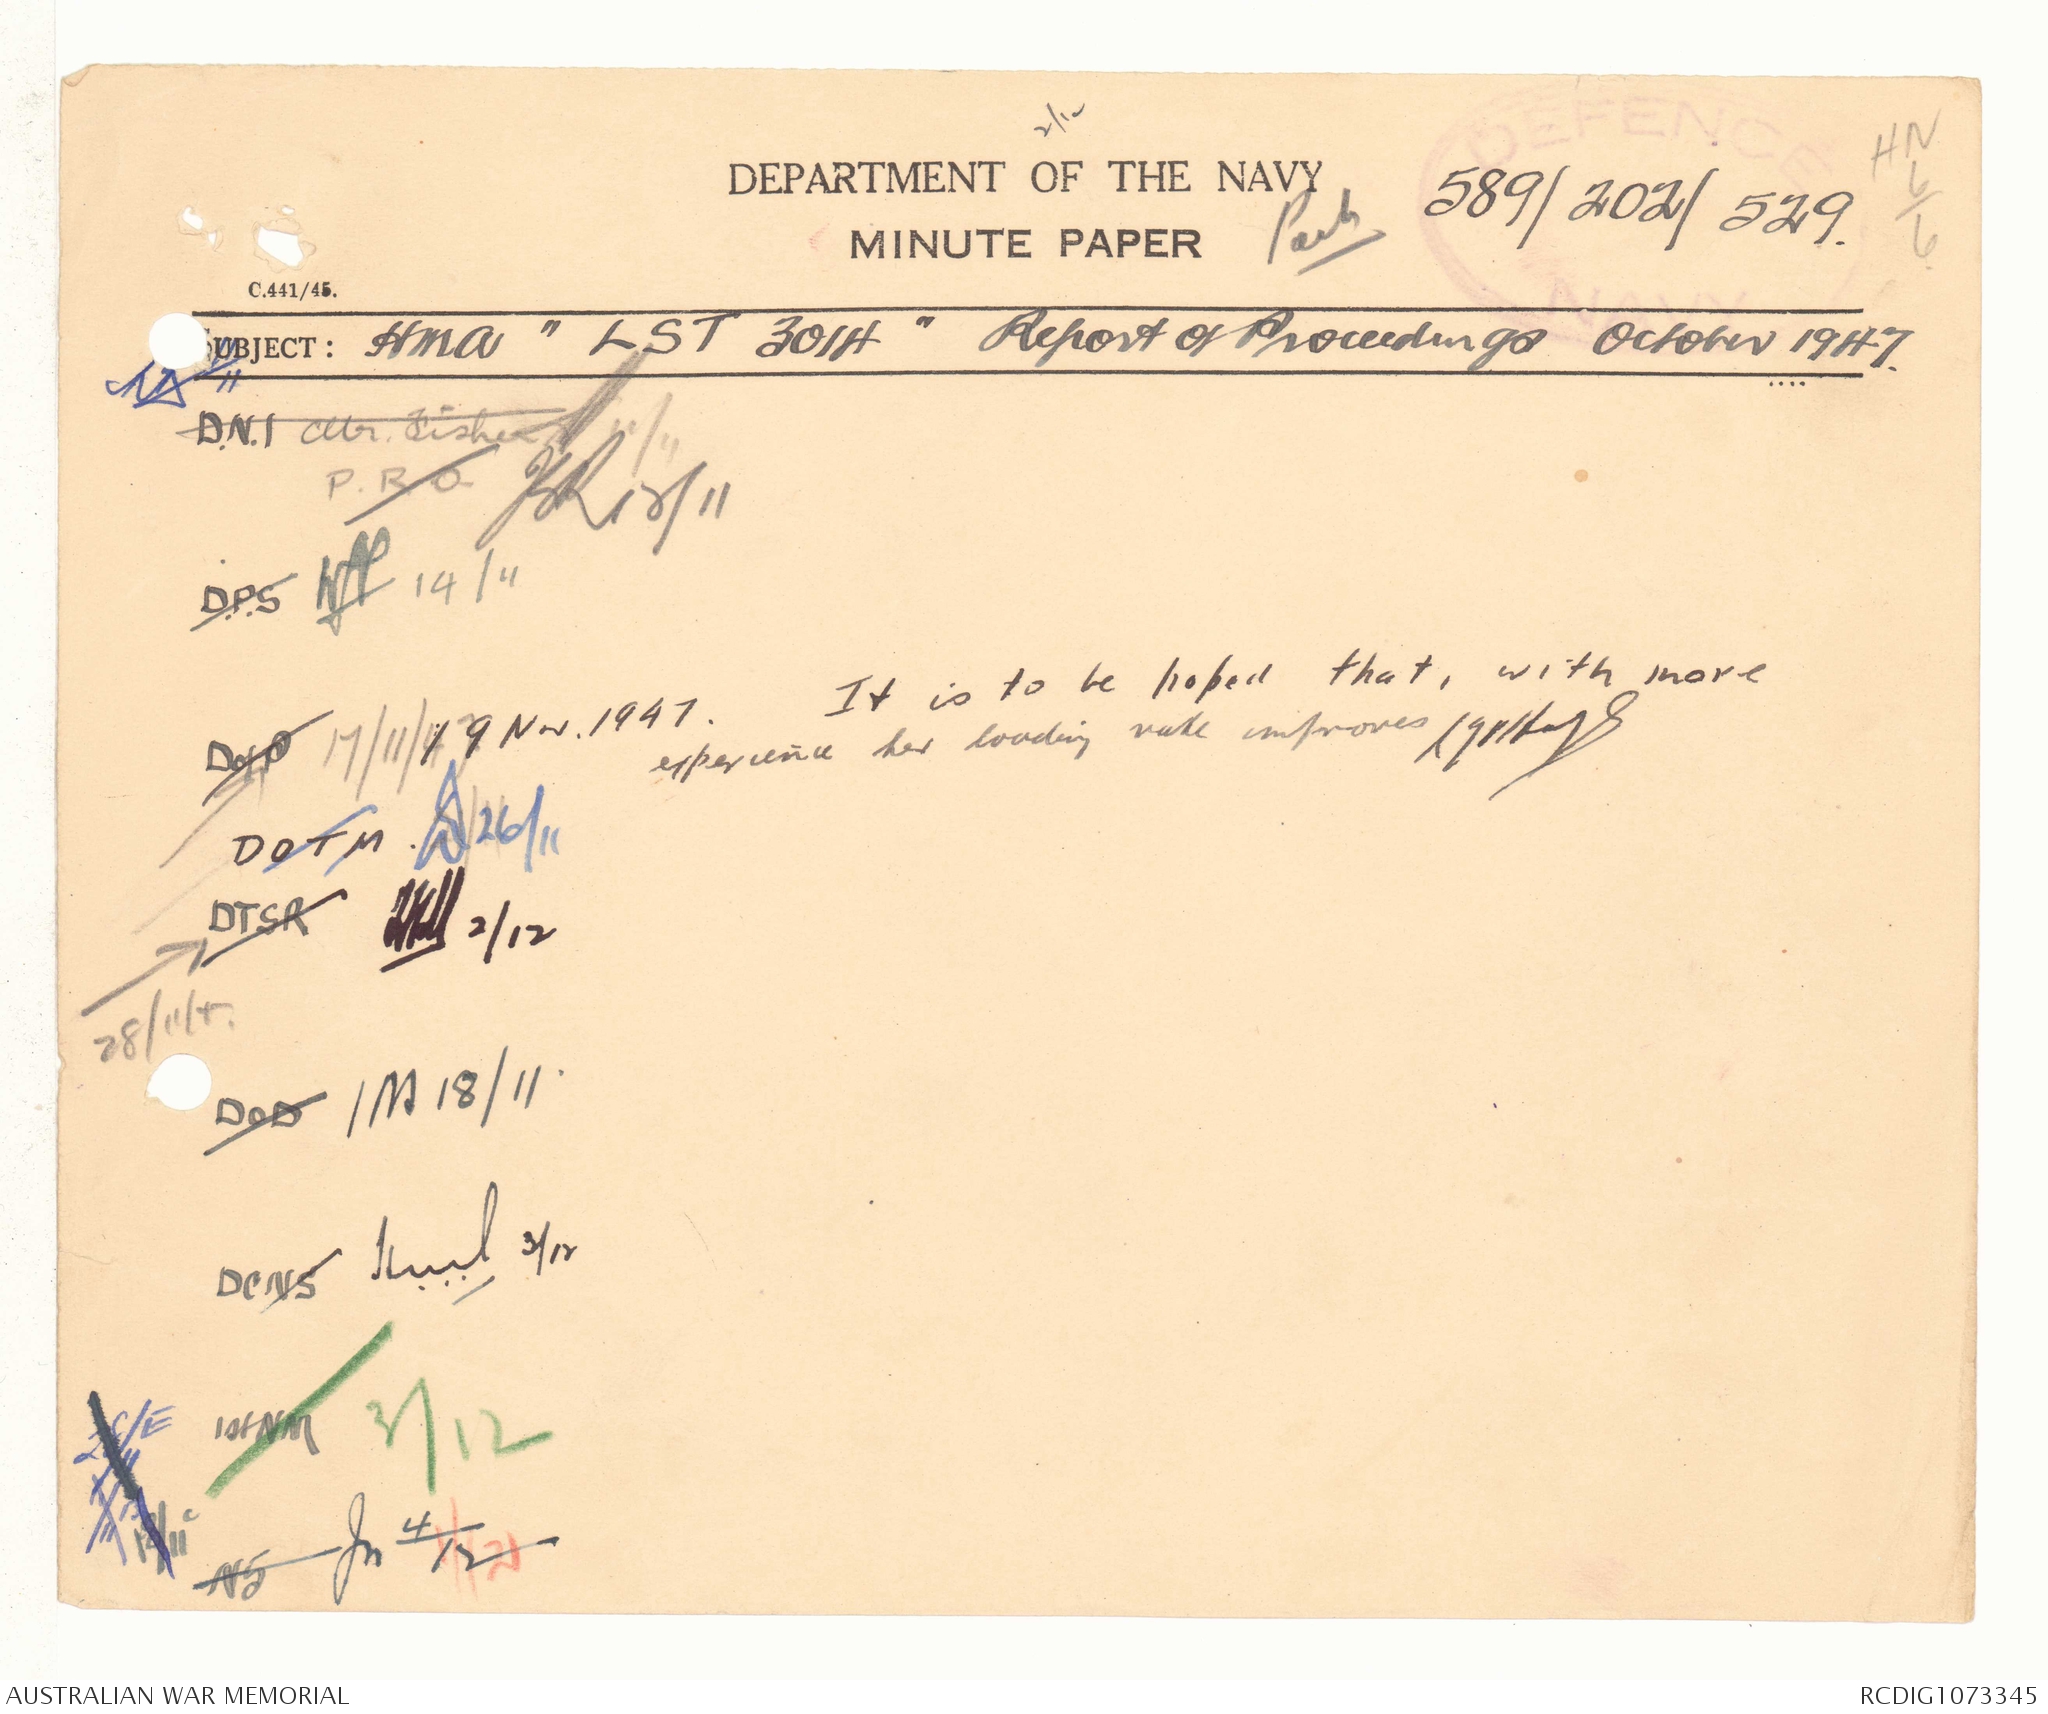 2/12
DEFENCE
HN
6/6
DEPARTMENT OF THE NAVY
589/202/529.
MINUTE PAPER
NAVY
C.441/45.
SUBJECT: HMA "LST 3014" Report of Proceedings October 1947.
D.N.I Mr. Fisher 11/11
P.R.O. 13/11
D.P.S 14/11
DofP 17/11/47 19 Nov. 1947. It is to be hoped that, with more
experience her loading rate improves
DOTM. 26/11
DTSR 2/12
28/11/47
DoD 18/11
DCNS 3/12
1stNM 3/12
C/E
NS 4/12
AUSTRALIAN WAR MEMORIAL
RCDIG1073345